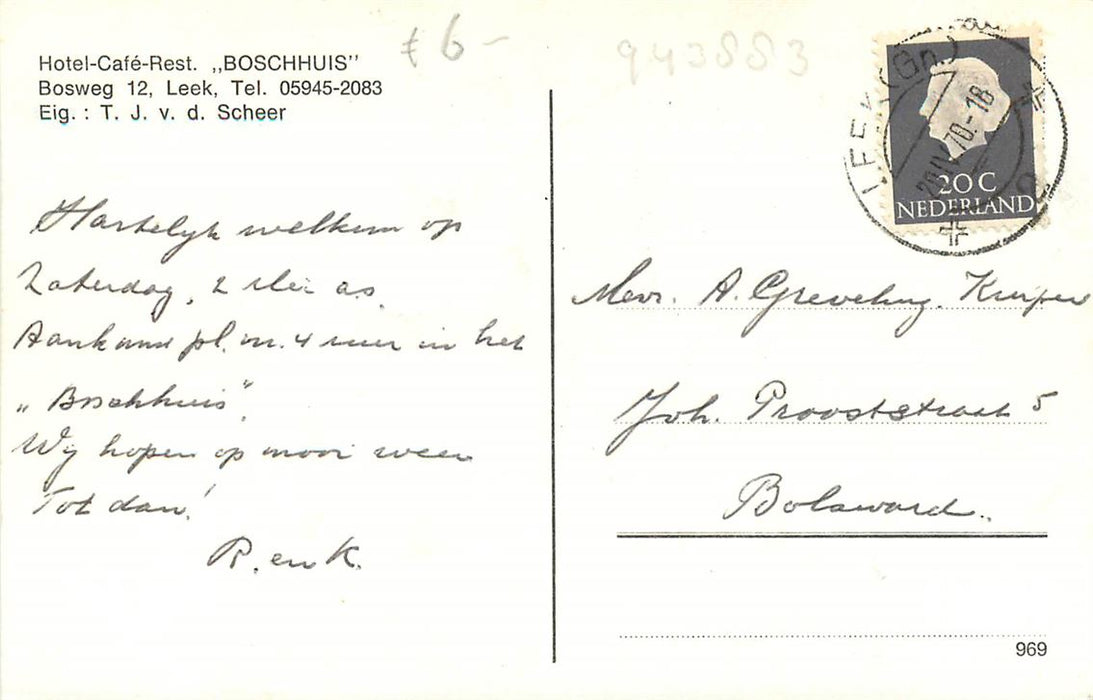 Hotel-Café-Rest. „BOSCHHUIS”
Bosweg 12, Leek, Tel. 05945-2083
Eig. : T. J. v. d. Scheer
6-
943883
LEEK (Gn.)
IV.70.-18
20 C
NEDERLAND
Hartelyk welkom op
Zaterdag, 2 Mei a.s.
Aankomst pl.m. 4 uur in het
„Boschhuis”.
Wy hopen op mooi weer
Tot dan!
R. en K.
Mevr. A. Greveling. Kuiper
Joh. Prooststraat 5
Bolsward.
969